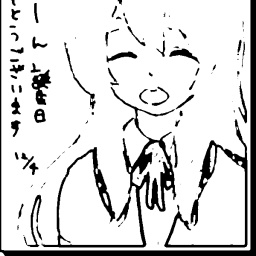 ーん誕生日
とうございます
12/4